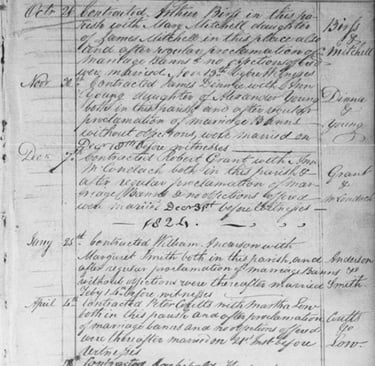 Octr 26 Contracted Arthur Birss in this pa-
rish with Mary Mitchell daughter Birss
of James Mitchell in this place also &
and after regular proclamation of Mitchell
marriage Banns & no objections offered
were married Novr 13th before witnesses
Novr 20th Contracted James Dinnie with Ann
Young daughter of Alexander Young Dinnie
both in this parish and after regular &
proclamation of marriage Banns Young
without objections, were married on
Decr 18th before witnesses
Decr 7th Contracted Robert Grant with Ann
McCondoch both in this parish & Grant
after regular proclamation of mar- &
riage Banns & no objections offered McCondoch
were married Decr 31st before witnesses
1824
Jany 25th Contracted William Anderson with
Margaret Smith both in this parish, and Anderson
after regular proclamation of marriage Banns &
without objections were thereafter married Smith
before witnesses
April 4th Contracted Peter Coutts with Martha Low Coutts
both in this parish and after proclamation &
of marriage banns and no objections offered Low
were thereafter married on 21st Inst before
witnesses
Contracted Archibald